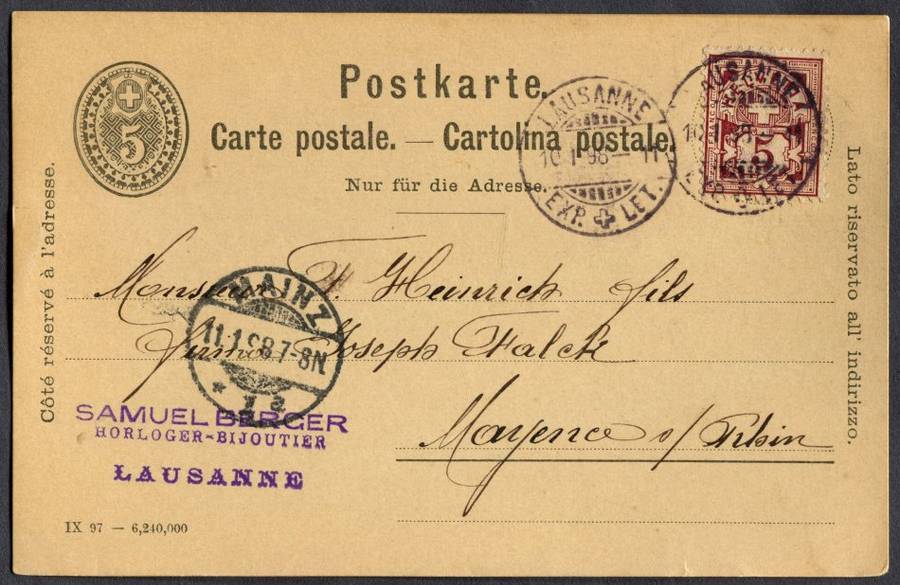 Postkarte.
Carte postale. — Cartolina postale.
Nur für die Adresse.
5
5
LAUSANNE
10.I.98–11
EXP. LET.
LAUSANNE
Côté réservé à l'adresse.
Lato riservato all' indirizzo.
Monsieur Heinrich fils
firma Joseph Falck
Mayence s/ Rhin
MAINZ
11.1.98 7-8N
SAMUEL BERGER
HORLOGER-BIJOUTIER
LAUSANNE
IX 97 — 6,240,000